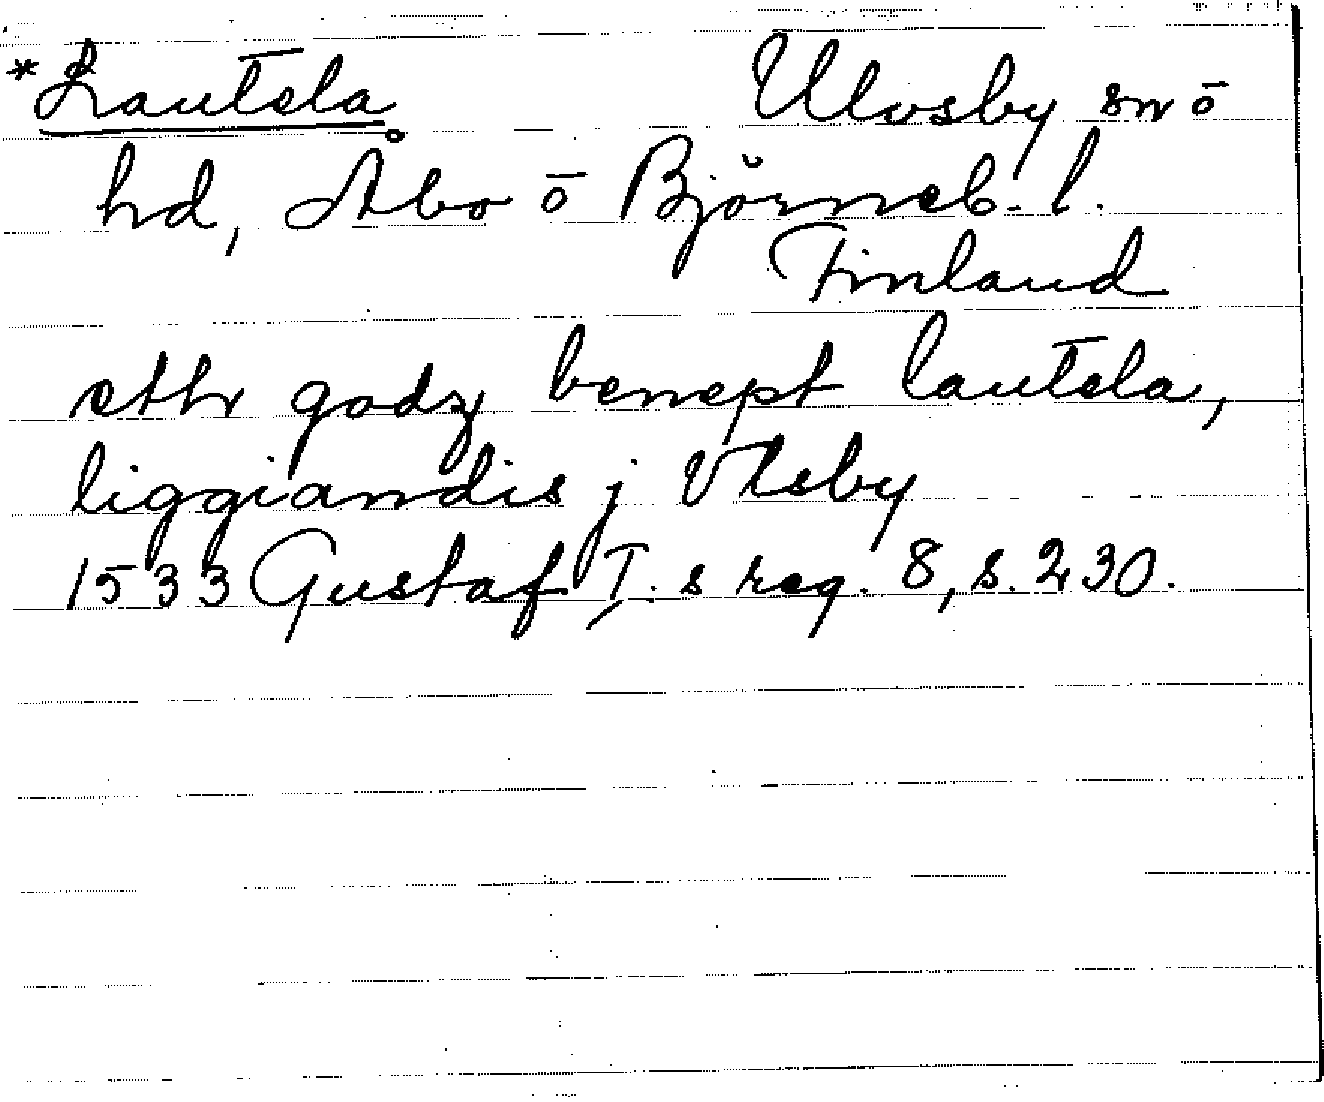 *Lautela Ulvsby sn ō
hd, Åbo ō Björneb. l.
Finland
etthr godz benept lautela,
liggiandis j Vlsby
1533 Gustaf I:s reg. 8, s. 230.